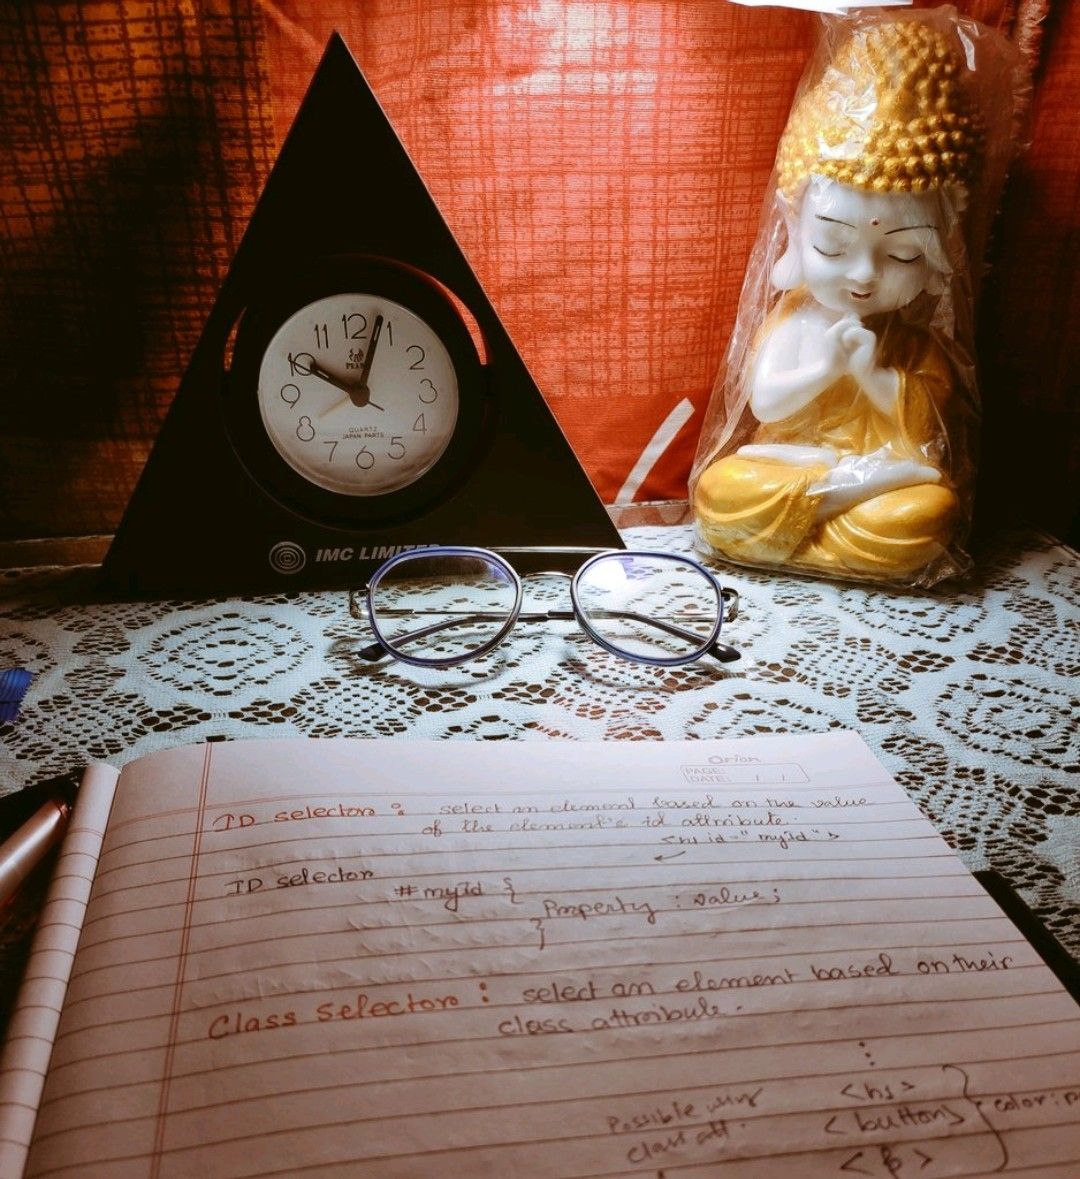 11 12 1
10 2
9 3
8 4
7 6 5
QUARTZ
JAPAN PARTS
IMC LIMITED
Orion
PAGE:
DATE: / /
ID selector : select an element based on the value
of the element's id attribute.
<h1 id="myId">
ID selector
#myId {
Property : value;
}
Class Selector : select an element based on their
class attribute.
<h1>
Possible using
<button> color: p
class att.
<p>